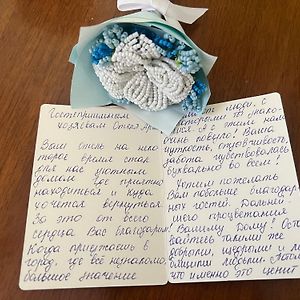 Гостеприимным
хозяевам Отеля Арт
Ваш отель на неко
торое время стал
для нас уютным
домом где приятно
находиться и куда
хочется вернуться.
За это от всего
сердца Вас благодарим!
Когда приезжаешь в
город, где всё незнакомо,
большое значение
люди, с
которыми
нам
очень повезло! Ваша
чуткость, отзывчивость,
забота чувствовалась
буквально во всем!
Хотим пожелать
Вам побольше благодар
ных гостей. Дальней
шего процветания
Вашему Дому!
такими же
добрыми, щедрыми и
людьми.
что именно это ценит